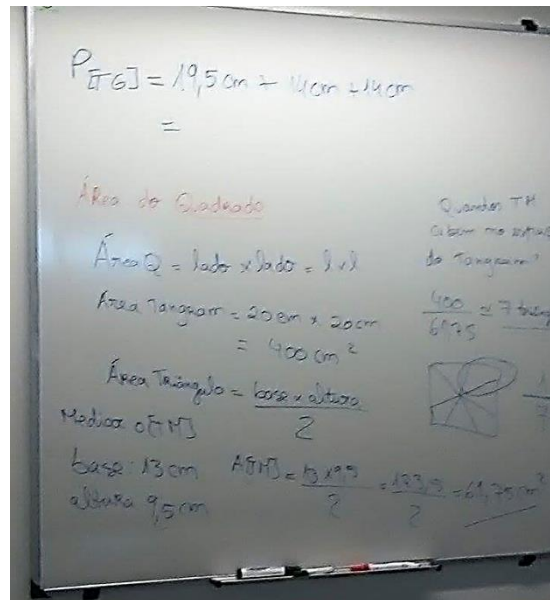 P[TG] = 19,5cm + 14cm + 14cm
=
Área do Quadrado
Área Q = lado x lado = l x l
Área Tangram = 20cm x 20cm
= 400 cm²
Área Triângulo = base x altura / 2
Medidas [TM]
base: 13cm
altura 9,5cm
A[TM] = 13x9,5 / 2 = 123,5 / 2 = 61,75cm²
Quantos TM
cabem no
do Tangram?
400 / 61,75 ≈ 7
1 / 7